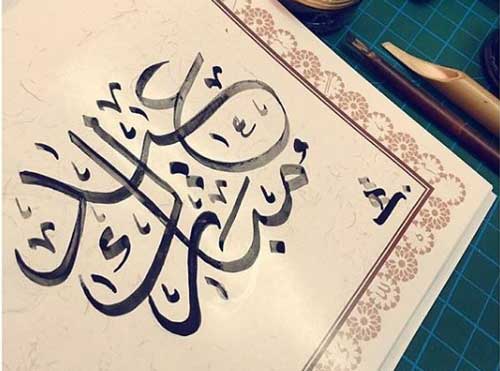 عيدك مبارك